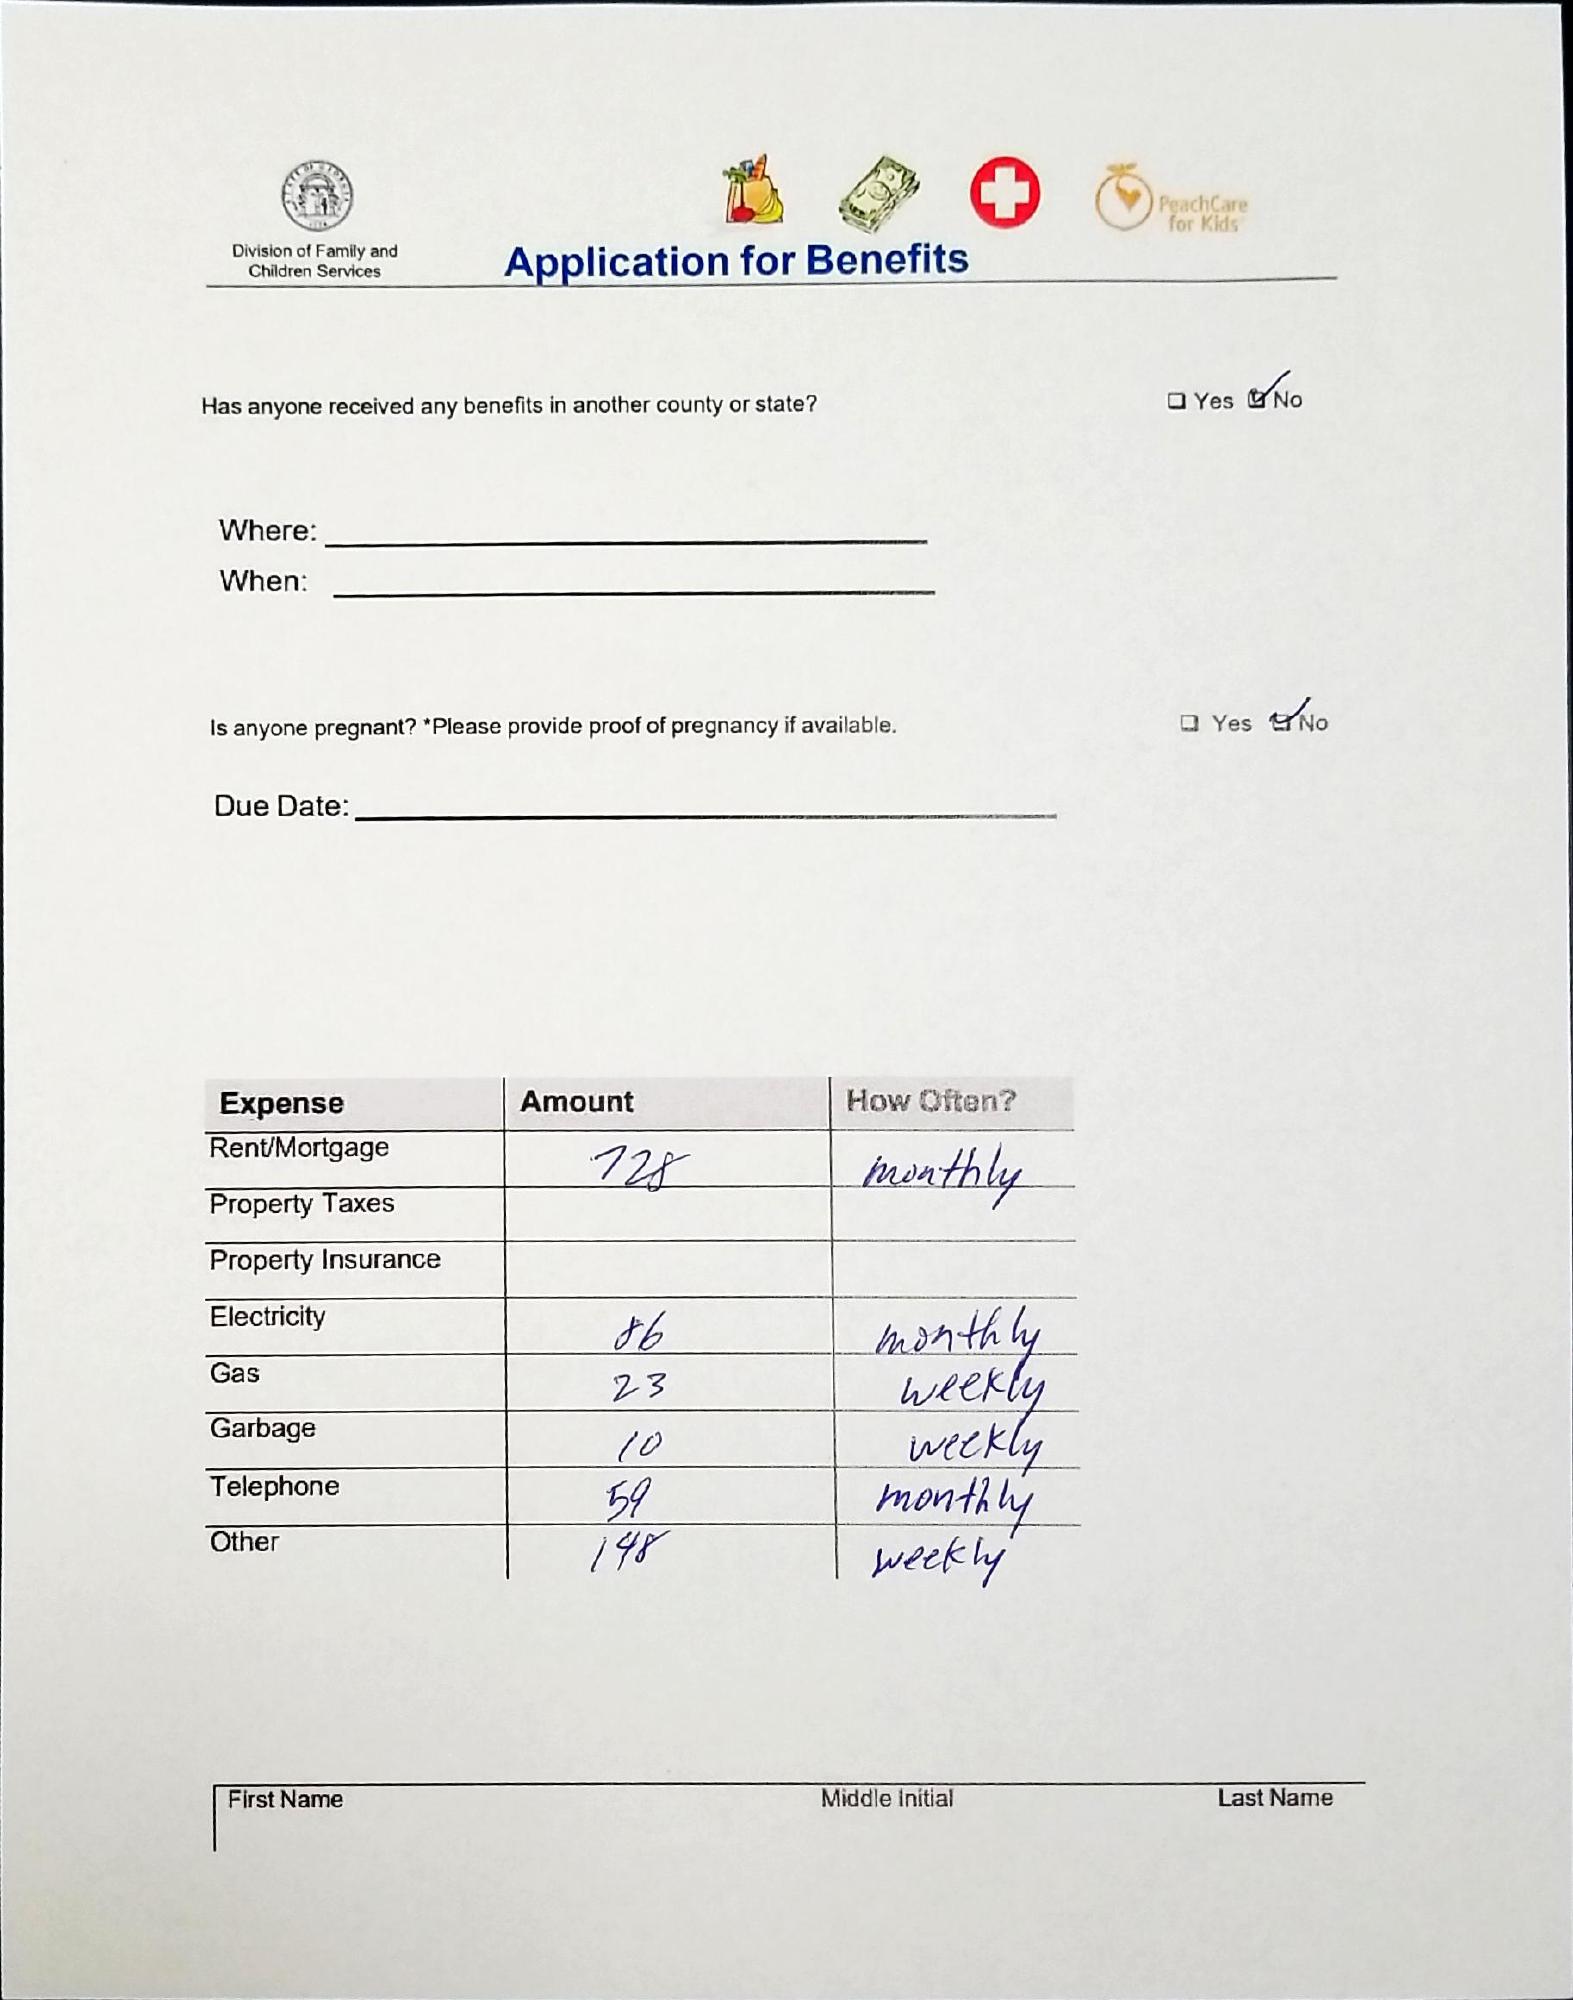 STATE OF GEORGIA
Division of Family and
Children Services
PeachCare
for Kids
Application for Benefits
Has anyone received any benefits in another county or state? ☐ Yes ☑ No
Where:
When:
Is anyone pregnant? *Please provide proof of pregnancy if available. ☐ Yes ☑ No
Due Date:
Expense Amount How Often?
Rent/Mortgage 728 monthly
Property Taxes
Property Insurance
Electricity 86 monthly
Gas 23 weekly
Garbage 10 weekly
Telephone 59 monthly
Other 148 weekly
First Name Middle Initial Last Name